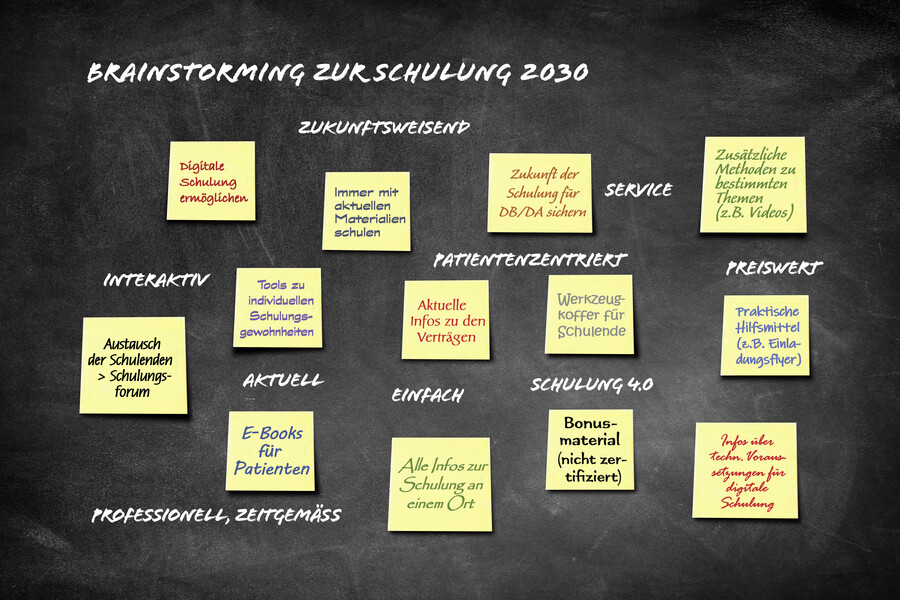 BRAINSTORMING ZUR SCHULUNG 2030
ZUKUNFTSWEISEND
Digitale
Schulung
ermöglichen
Immer mit
aktuellen
Materialien
schulen
Zukunft der
Schulung für
DB/DA sichern
SERVICE
Zusätzliche
Methoden zu
bestimmten
Themen
(z.B. Videos)
INTERAKTIV
Tools zu
individuellen
Schulungs-
gewohnheiten
PATIENTENZENTRIERT
Aktuelle
Infos zu den
Verträgen
Werkzeug-
koffer für
Schulende
PREISWERT
Praktische
Hilfsmittel
(z.B. Einla-
dungsflyer)
Austausch
der Schulenden
> Schulungs-
forum
AKTUELL
EINFACH
SCHULUNG 4.0
E-Books
für
Patienten
Alle Infos zur
Schulung an
einem Ort
Bonus-
material
(nicht zer-
tifiziert)
Infos über
techn. Voraus-
setzungen für
digitale
Schulung
PROFESSIONELL, ZEITGEMÄSS